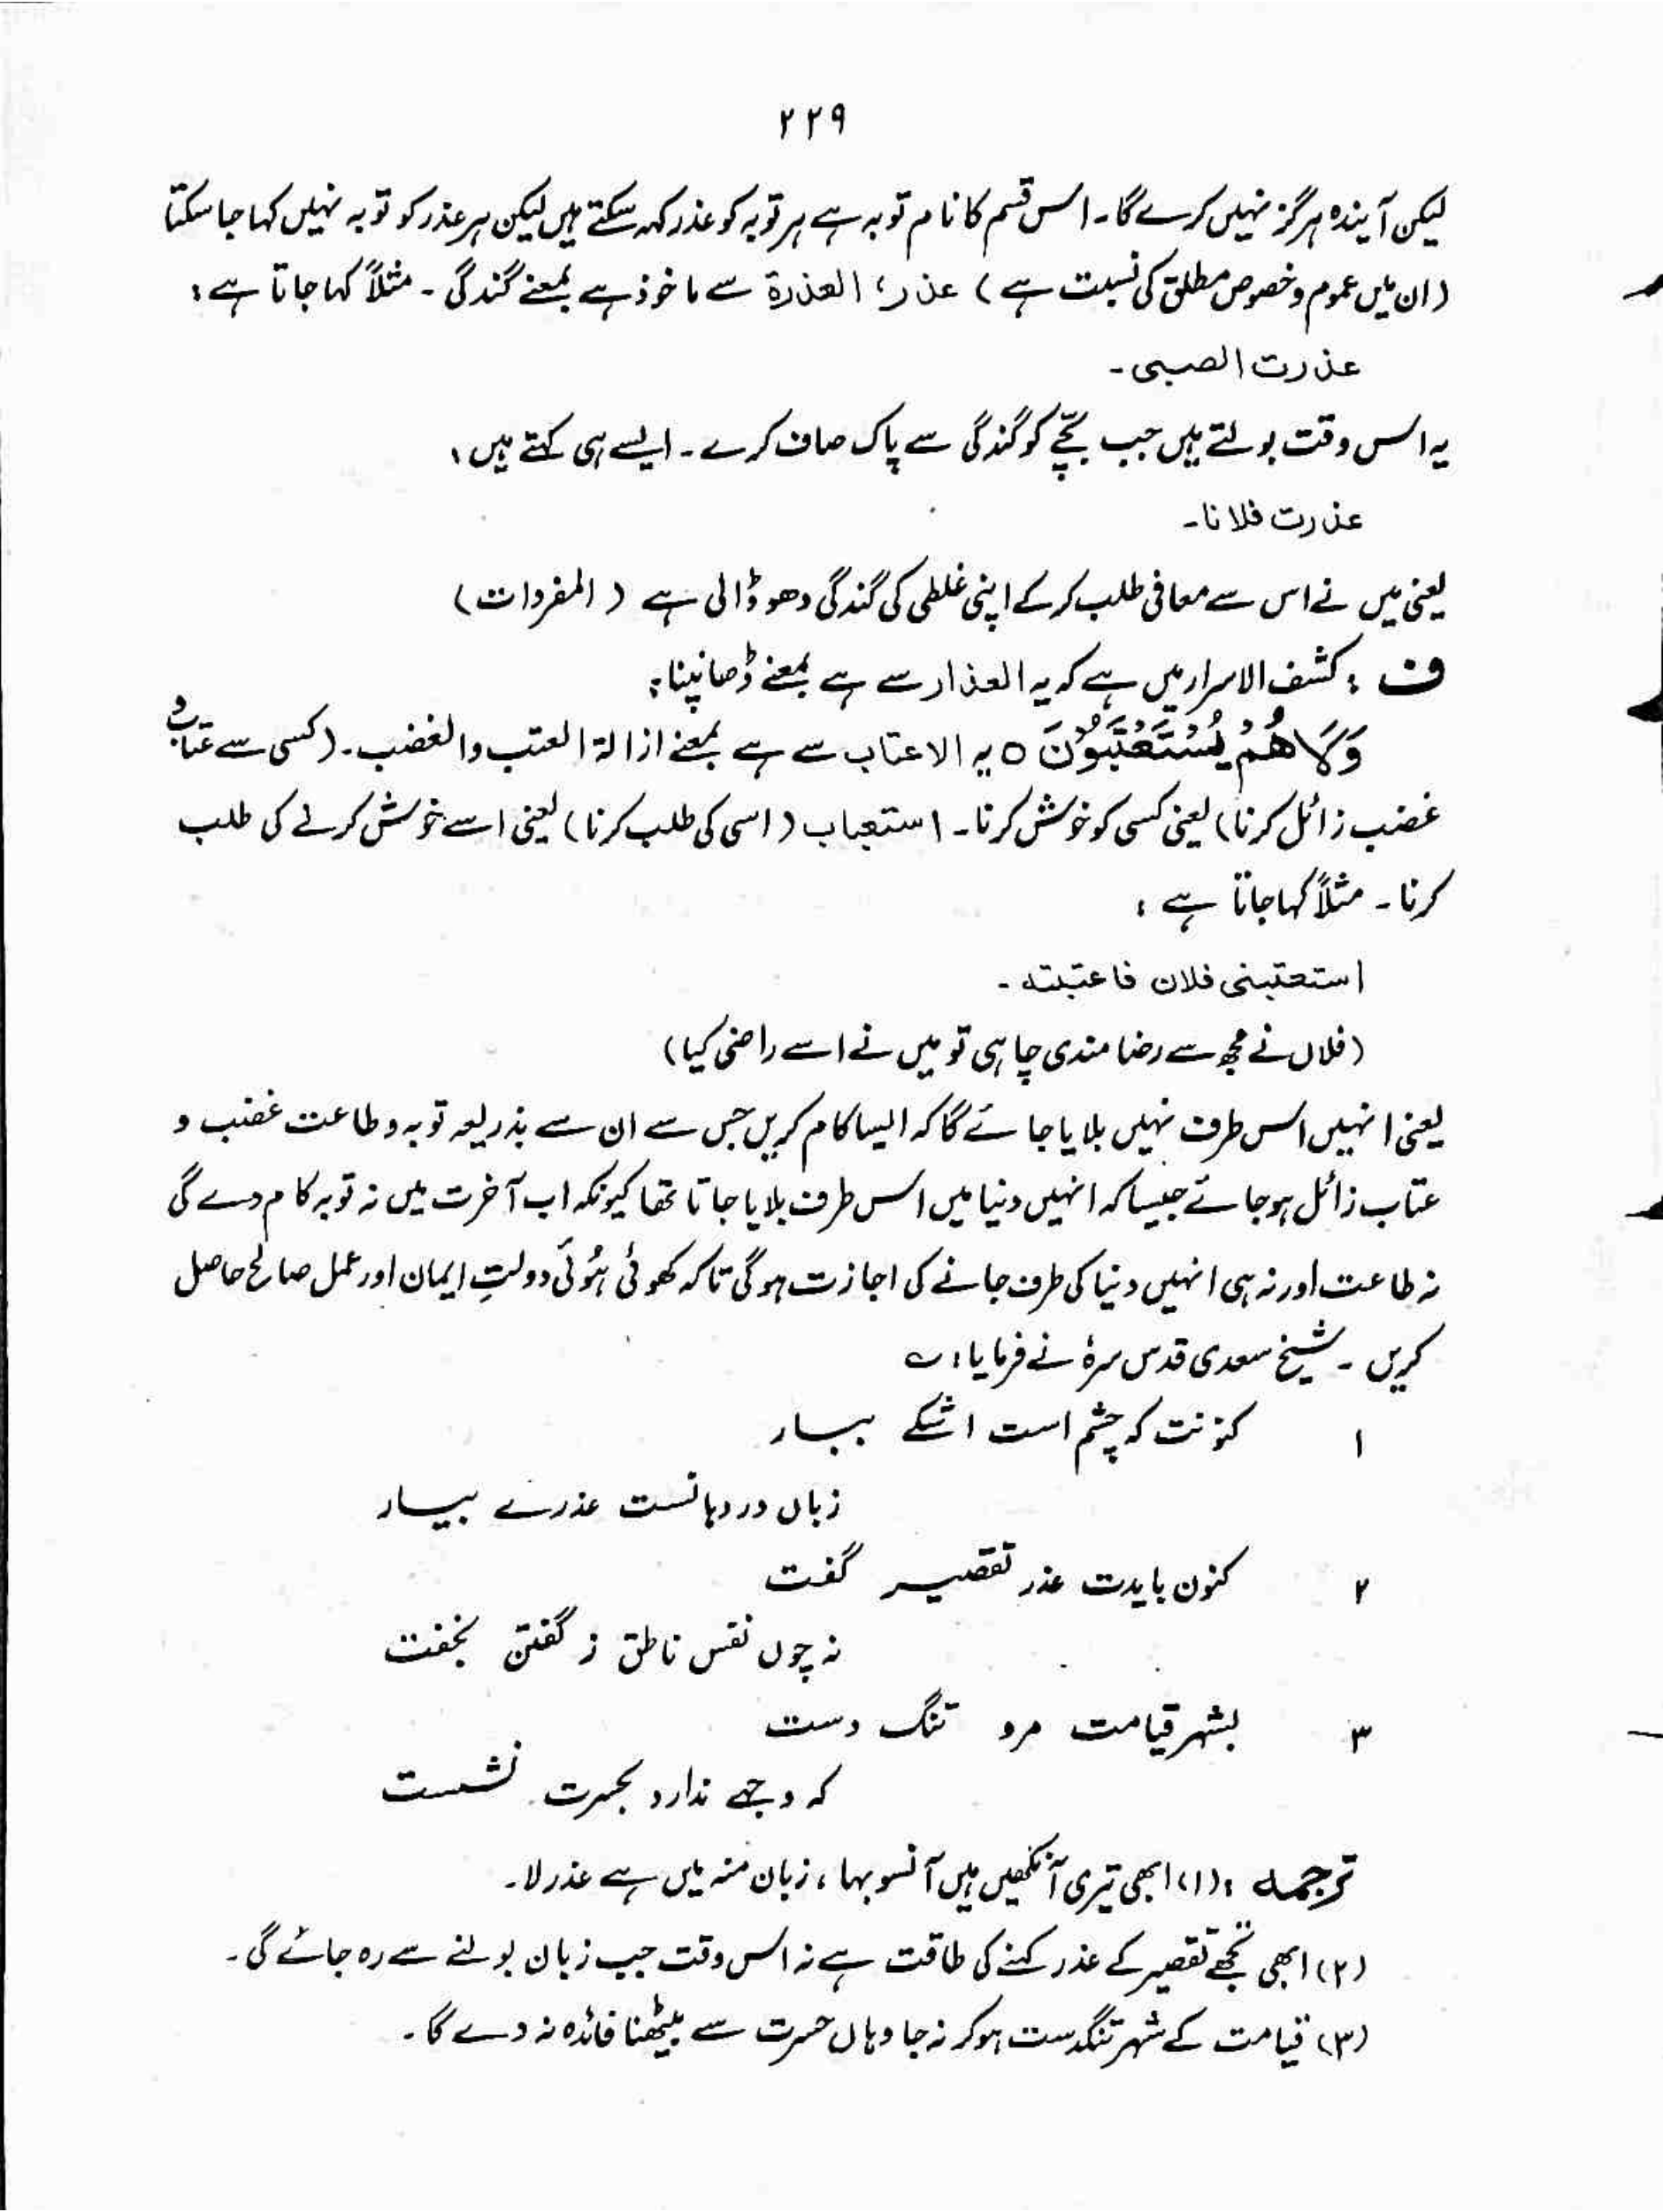 ۲۲۹
لیکن آیندہ ہرگز نہیں کرے گا۔ اس قسم کا نام توبہ ہے ہر توبہ کو عذر کہہ سکتے ہیں لیکن ہر عذر کو توبہ نہیں کہا جا سکتا
(ان میں عموم و خصوص مطلق کی نسبت ہے) عذر، العذرة سے ماخوذ ہے بمعنے گندگی۔ مثلاً کہا جاتا ہے :
عذرت الصبی۔
یہ اس وقت بولتے ہیں جب بچّے کو گندگی سے پاک صاف کرے۔ ایسے ہی کہتے ہیں :
عذرت فلانا۔
یعنی میں نے اس سے معافی طلب کر کے اپنی غلطی کی گندگی دھو ڈالی ہے (المفردات)
ف : کشف الاسرار میں ہے کہ یہ العذار سے ہے بمعنے ڈھانپنا :
وَلَا هُمْ يُسْتَعْتَبُوْنَ ○ یہ الاعتاب سے ہے بمعنے ازالة العتب والغضب۔ (کسی سے عتاب و
غضب زائل کرنا) یعنی کسی کو خوش کرنا۔ استعتاب (اسی کی طلب کرنا) یعنی اسے خوش کرنے کی طلب
کرنا۔ مثلاً کہا جاتا ہے :
استعتبنی فلان فاعتبتہ۔
(فلاں نے مجھ سے رضا مندی چاہی تو میں نے اسے راضی کیا)
یعنی انہیں اس طرف نہیں بلایا جائے گا کہ ایسا کام کریں جس سے ان سے بذریعہ توبہ و طاعت غضب و
عتاب زائل ہو جائے جیسا کہ انہیں دنیا میں اس طرف بلایا جاتا تھا کیونکہ اب آخرت میں نہ توبہ کام دے گی
نہ طاعت اور نہ ہی انہیں دنیا کی طرف جانے کی اجازت ہوگی تاکہ کھوئی ہُوئی دولتِ ایمان اور عمل صالح حاصل
کریں ۔ شیخ سعدی قدس سرہٗ نے فرمایا : ؎
۱ کنونت کہ چشم است اشکے ببار
زباں در دہانست عذرے بیار
۲ کنون بایدت عذر تقصیر گفت
نہ چوں نفس ناطق ز گفتن بخفت
۳ بشہر قیامت مرو تنگ دست
کہ وجہے ندارد بحسرت نشست
ترجمہ : (۱) ابھی تیری آنکھیں ہیں آنسو بہا ، زبان منہ میں ہے عذر لا۔
(۲) ابھی تجھے تقصیر کے عذر کہنے کی طاقت ہے نہ اس وقت جب زبان بولنے سے رہ جائے گی۔
(۳) قیامت کے شہر تنگدست ہو کر نہ جا وہاں حسرت سے بیٹھنا فائدہ نہ دے گا۔